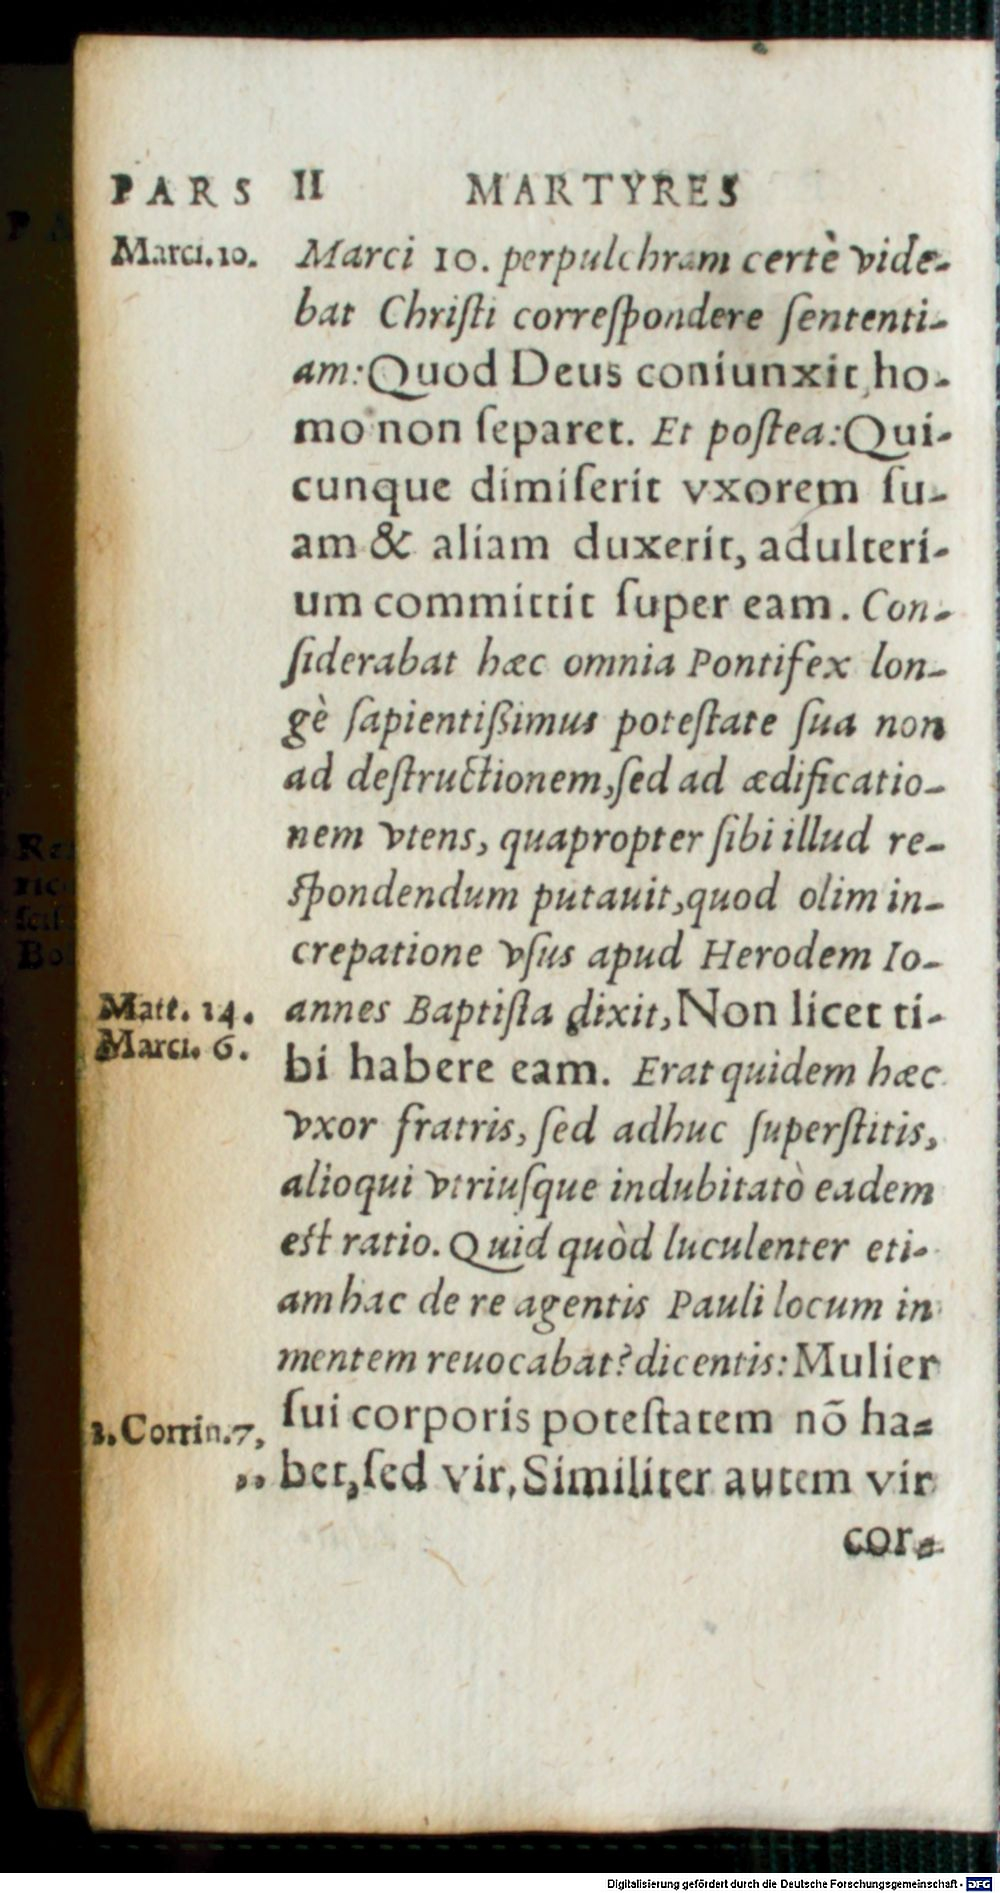 PARS II MARTYRES
Marci. 10.
Marci 10. perpulchram certè vide-
bat Chriſti correſpondere ſententi-
am: Quod Deus coniunxit, ho-
mo non ſeparet. Et poſtea: Qui-
cunque dimiſerit vxorem ſu-
am & aliam duxerit, adulteri-
um committit ſuper eam. Con-
ſiderabat hæc omnia Pontifex lon-
gè ſapientiſsimus poteſtate ſua non
ad deſtructionem, ſed ad ædificatio-
nem vtens, quapropter ſibi illud re-
ſpondendum putauit, quod olim in-
crepatione vſus apud Herodem Io-
Matt. 14.
annes Baptiſta dixit, Non licet ti-
Marci. 6.
bi habere eam. Erat quidem hæc
vxor fratris, ſed adhuc ſuperſtitis,
alioqui vtriuſque indubitatò eadem
eſt ratio. Quid quòd luculenter eti-
am hac de re agentis Pauli locum in
mentem reuocabat? dicentis: Mulier
1. Corrin. 7,
ſui corporis poteſtatem nō ha-
,, bet, ſed vir, Similiter autem vir
cor-
Digitalisierung gefördert durch die Deutsche Forschungsgemeinschaft - DFG